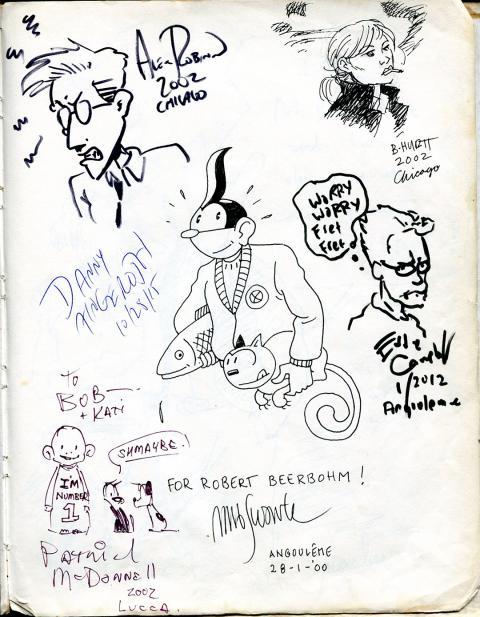 Alex Robinson
2002
CHICAGO
B. HURTT
2002
Chicago
WORRY
WORRY
FREt
FREt
DANNY
FINGEROTH
10/25/15
Eddie
Campbell
1/2012
Angouleme
To
BOB
+ KATI
SHMAYBE!
I'M
NUMBER
1
FOR ROBERT BEERBOHM!
ANGOULÊME
28-1-'00
PATRICK
McDONNELL
2002
LUCCA.